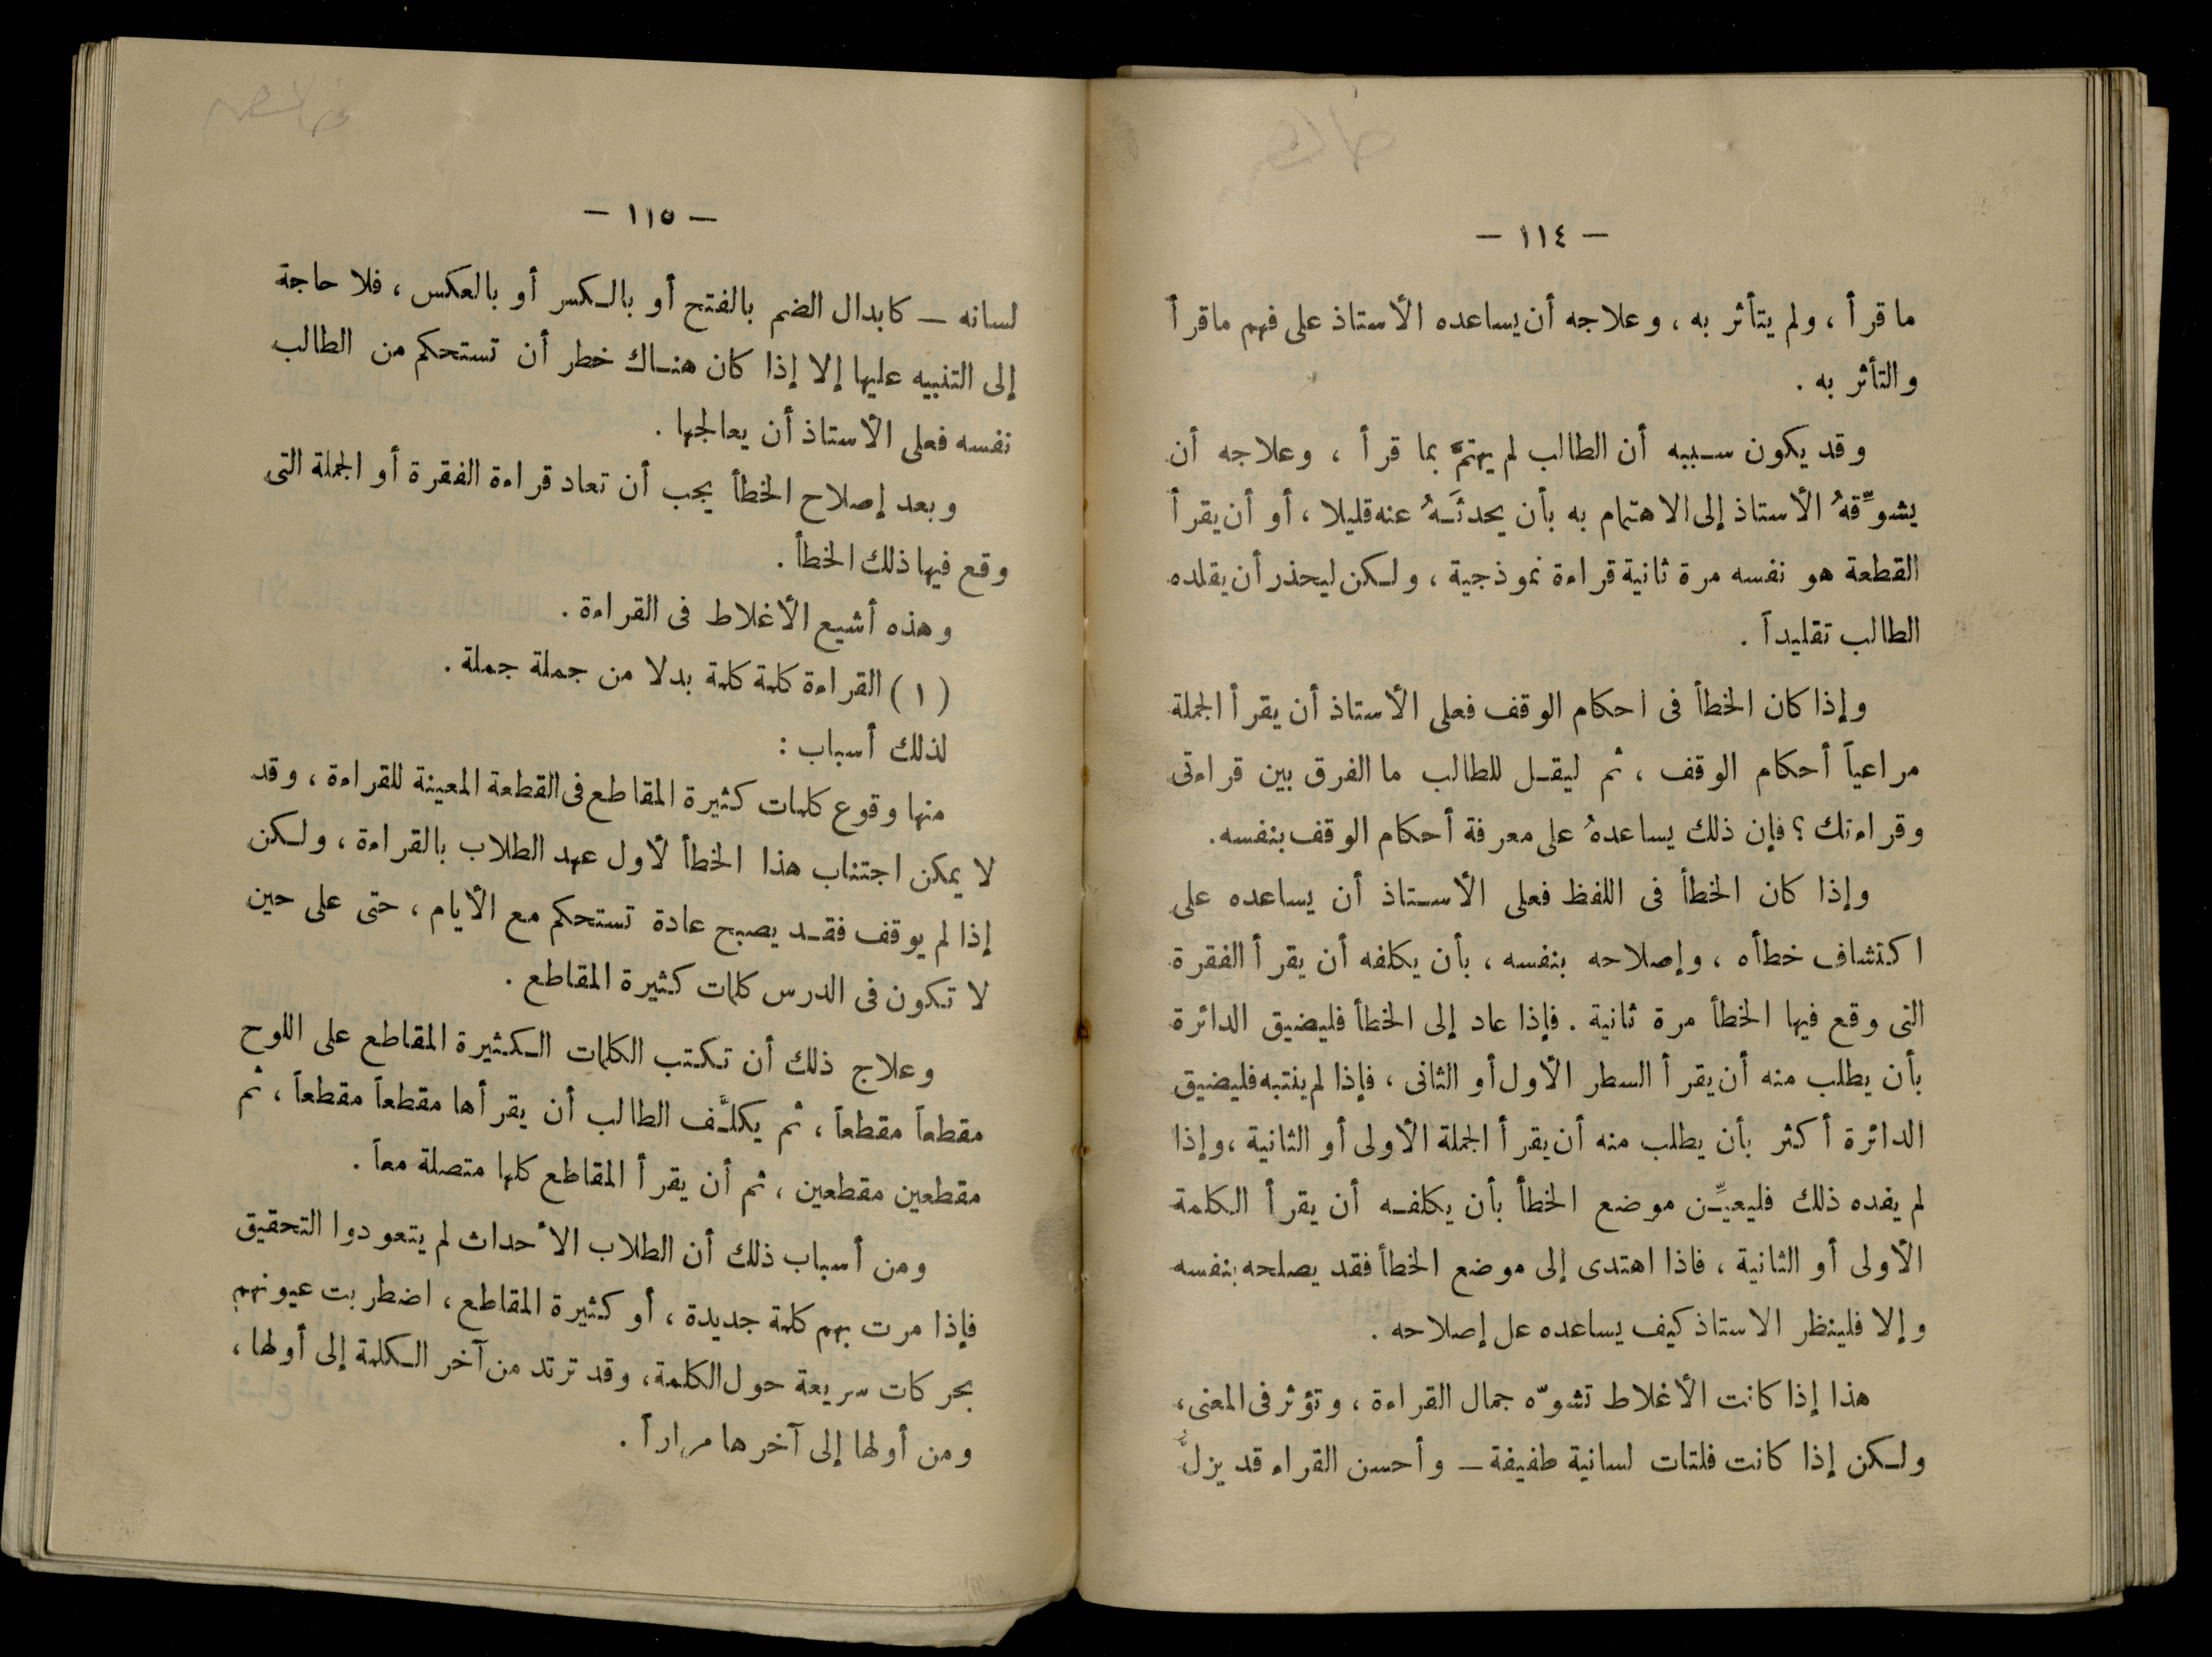 — ١١٤ —
ما قرأ ، ولم يتأثر به ، وعلاجه أن يساعده الأستاذ على فهم ما قرأ
والتأثر به .
وقد يكون سببه أن الطالب لم يهتمَّ بما قرأ ، وعلاجه أن
يشوِّقهُ الأستاذ إلى الاهتمام به بأن يحدثَهُ عنه قليلا ، أو أن يقرأ
القطعة هو نفسه مرة ثانية قراءة نموذجية ، ولكن ليحذر أن يقلده
الطالب تقليداً .
وإذا كان الخطأ فى احكام الوقف فعلى الأستاذ أن يقرأ الجملة
مراعياً أحكام الوقف ، ثم ليقل للطالب ما الفرق بين قراءتى
وقراءتك ؟ فإن ذلك يساعدهُ على معرفة أحكام الوقف بنفسه .
وإذا كان الخطأ فى اللفظ فعلى الأستاذ أن يساعده على
اكتشاف خطأه ، وإصلاحه بنفسه ، بأن يكلفه أن يقرأ الفقرة
التى وقع فيها الخطأ مرة ثانية . فإذا عاد إلى الخطأ فليضيق الدائرة
بأن يطلب منه أن يقرأ السطر الأول أو الثانى ، فإذا لم ينتبه فليضيق
الدائرة أكثر بأن يطلب منه أن يقرأ الجملة الأولى أو الثانية ، وإذا
لم يفده ذلك فليعيِّن موضع الخطأ بأن يكلفه أن يقرأ الكلمة
الأولى أو الثانية ، فاذا اهتدى إلى موضع الخطأ فقد يصلحه بنفسه
وإلا فلينظر الاستاذ كيف يساعده عل إصلاحه .
هذا إذا كانت الأغلاط تشوّه جمال القراءة ، وتؤثر فى المعنى ،
ولكن إذا كانت فلتات لسانية طفيفة — وأحسن القراء قد يزلُّ
— ١١٥ —
لسانه — كابدال الضم بالفتح أو بالكسر أو بالعكس ، فلا حاجة
إلى التنبيه عليها إلا إذا كان هناك خطر أن تستحكم من الطالب
نفسه فعلى الأستاذ أن يعالجها .
وبعد إصلاح الخطأ يجب أن تعاد قراءة الفقرة أو الجملة التى
وقع فيها ذلك الخطأ .
وهذه أشيع الأغلاط فى القراءة .
( ١ ) القراءة كلمة كلمة بدلا من جملة جملة .
لذلك أسباب :
منها وقوع كلمات كثيرة المقاطع فى القطعة المعينة للقراءة ، وقد
لا يمكن اجتناب هذا الخطأ لأول عهد الطلاب بالقراءة ، ولكن
إذا لم يوقف فقد يصبح عادة تستحكم مع الأيام ، حتى على حين
لا تكون فى الدرس كلمات كثيرة المقاطع .
وعلاج ذلك أن تكتب الكلمات الكثيرة المقاطع على اللوح
مقطعاً مقطعاً ، ثم يكلَّف الطالب أن يقرأها مقطعاً مقطعاً ، ثم
مقطعين مقطعين ، ثم أن يقرأ المقاطع كلها متصلة معاً .
ومن أسباب ذلك أن الطلاب الأحداث لم يتعودوا التحقيق
فإذا مرت بهم كلمة جديدة ، أو كثيرة المقاطع ، اضطربت عيونهم
بحركات سريعة حول الكلمة ، وقد ترتد من آخر الكلمة إلى أولها ،
ومن أولها إلى آخرها مراراً .